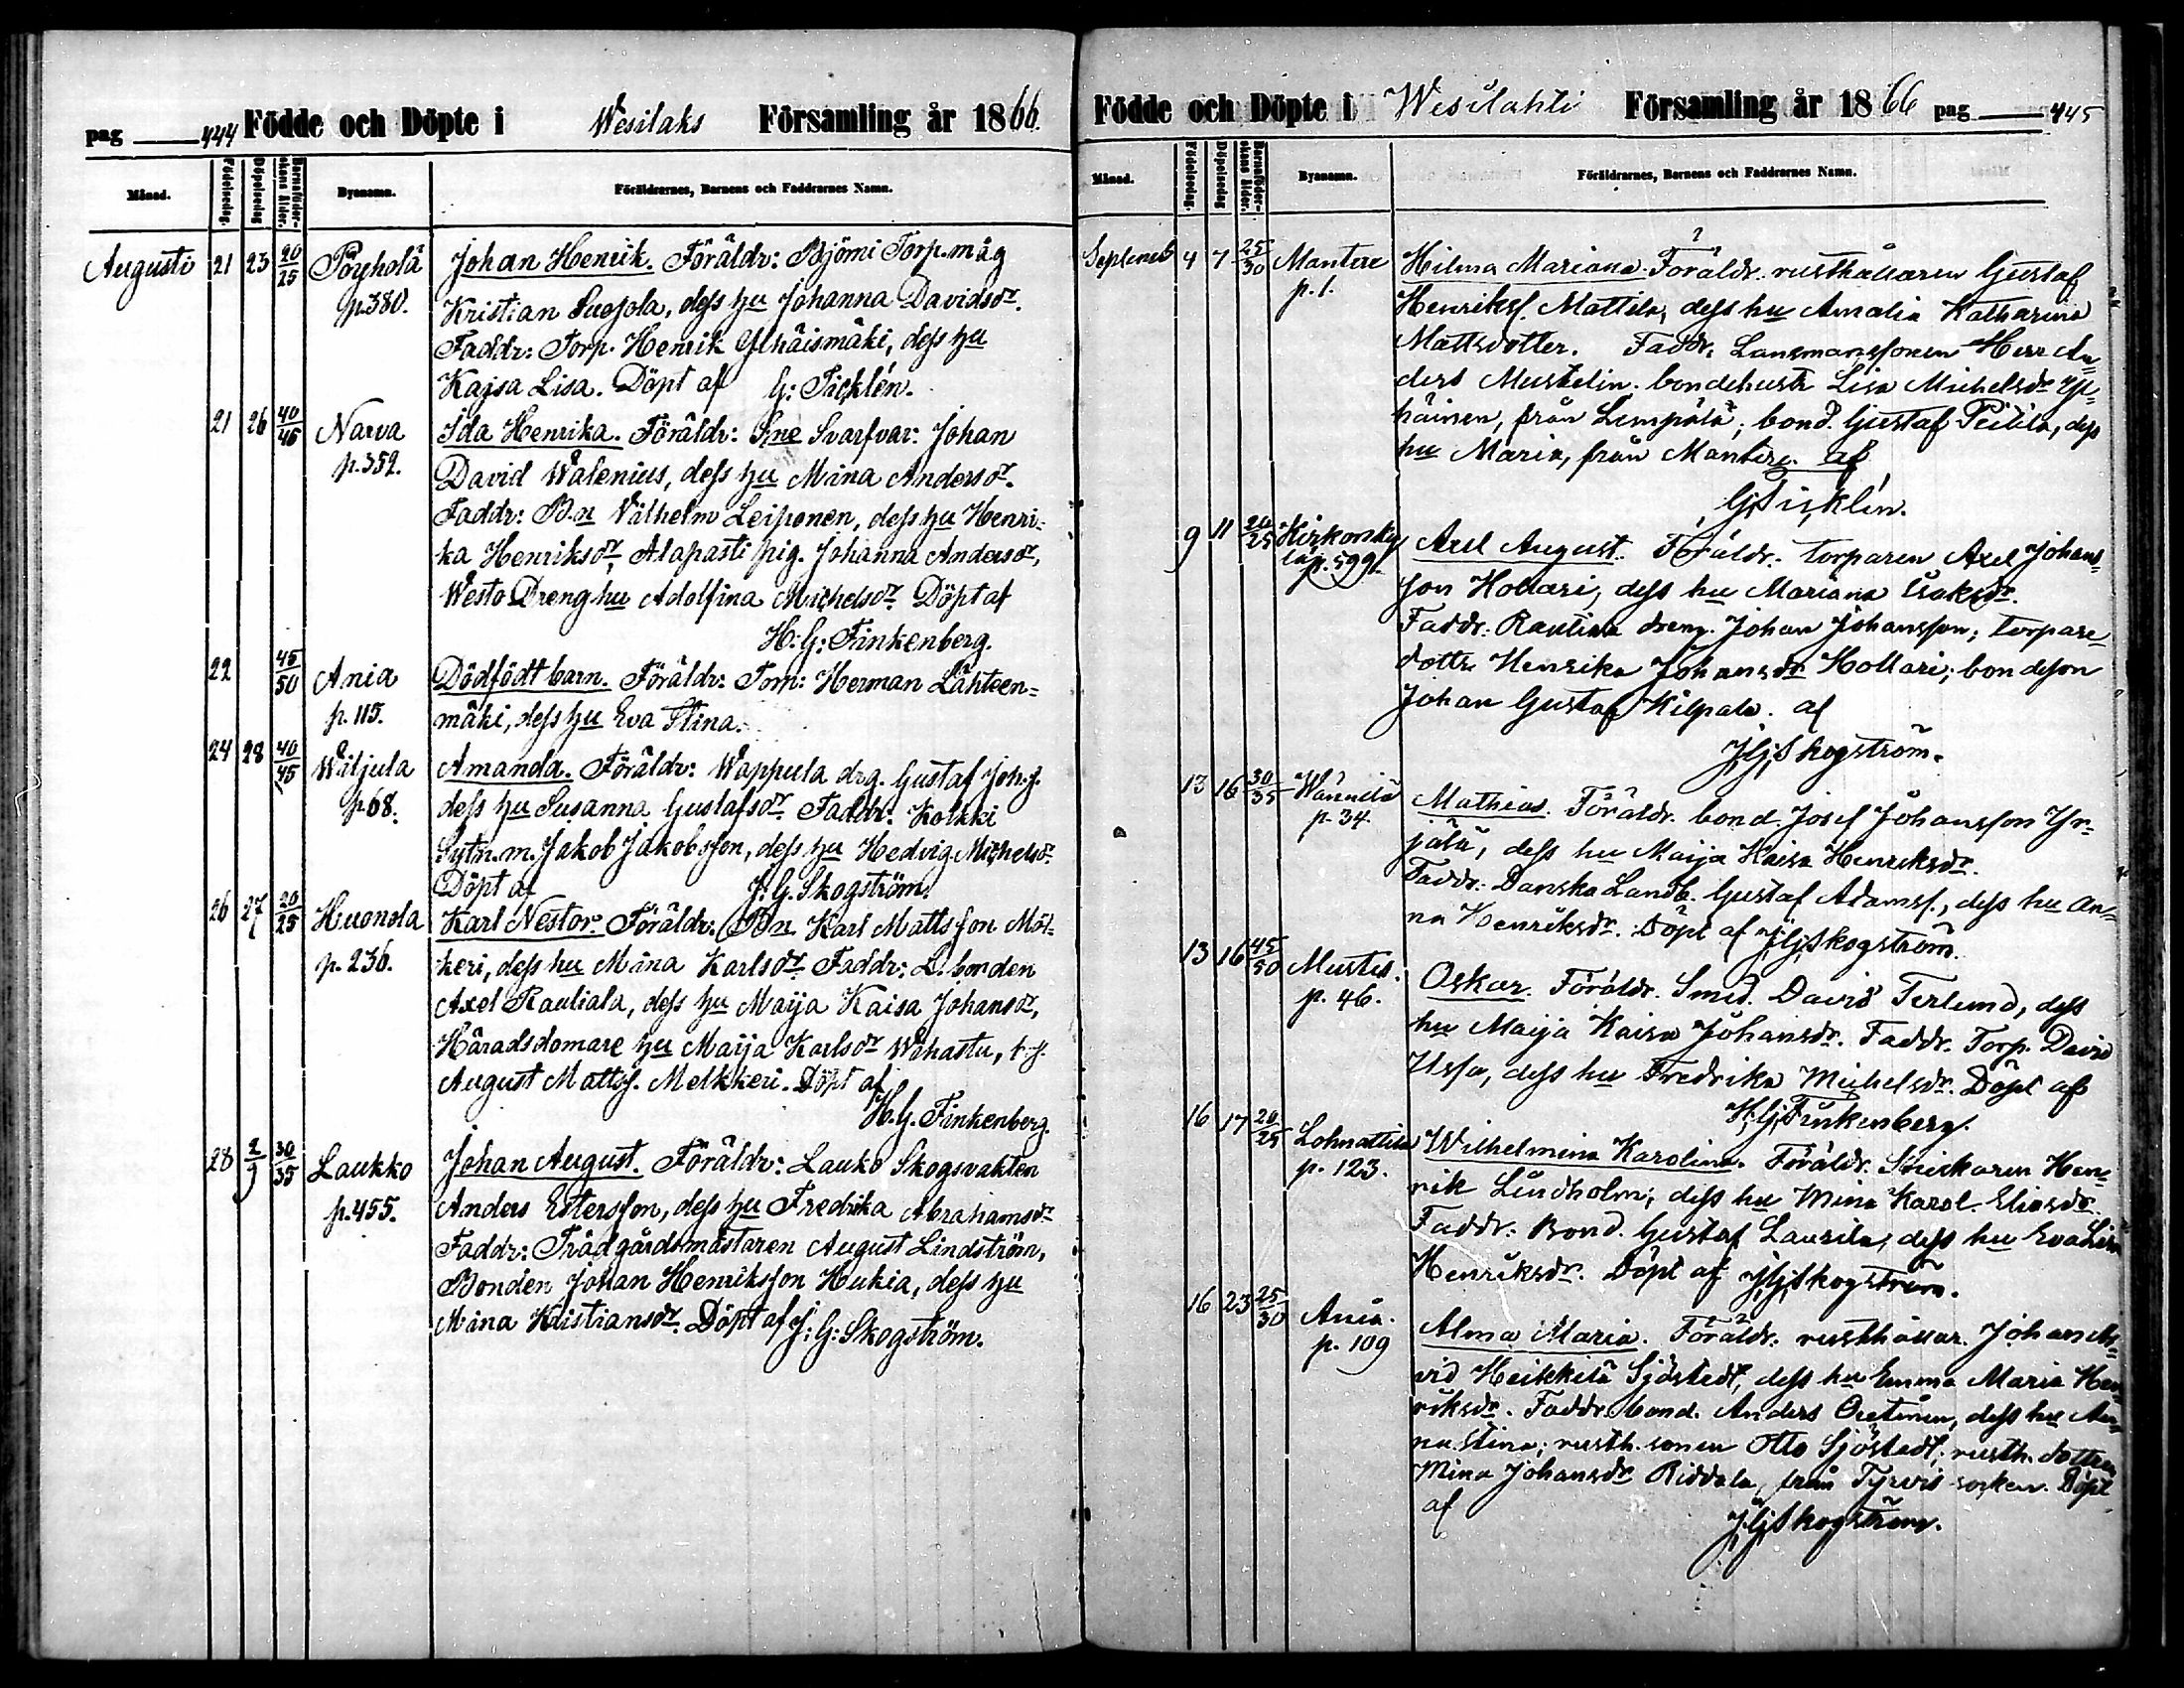 pag 444 Födde och Döpte i Wesilaks Församling år 1866.
Månad. Födelsedag. Döpelsedag Barnaföderskans ålder. Bynamn. Föräldrarnes, Barnens och Faddrarnes Namn.
Augusti 21 23 20/25 Pöyhölä Johan Henrik. Föräldr: Björni Torp.måg
p.380. Kristian Suojola, dess hu Johanna Davidsdr.
Faddr: Torp. Henrik Ylhäismäki, dess hu
Kajsa Lisa. Döpt af G: Picklén.
21 26 40/45 Narva Ida Henrika. Föräldr: Sne Svarfvar: Johan
p.359. David Walenius, dess hu Mina Andersdr.
Faddr: B.n Vilhelm Leiponen, dess hu Henri=
ka Henriksdr, Alapasti pig. Johanna Andersdr,
Westo Dreng hu Adolfina Michelsdr. Döpt af
H: G: Finkenberg.
22 45/50 Ania Dödfödt barn. Föräldr: Torp: Herman Lähteen=
p. 115. mäki, dess hu Eva Stina.
24 28 40/45 Wäljula Amanda. Föräldr: Wappula drg. Gustaf Joh.s.
p.68. dess hu Susanna Gustafsdr. Faddr: Kolkki
Sytn.m. Jakob Jakobsson, dess hu Hedvig Michelsdr
Döpt af J. G. Skogström.
26 27 20/25 Huonola Karl Nestor. Föräldr: Bn Karl Mattsson Möl=
p. 236. keri, dess hu Mina Karlsdr. Faddr: L. bonden
Axel Rautiala, dess hu Maija Kaisa Johansdr,
Häradsdomare hu Maija Karlsdr Wihastu, t.j.
August Mattss. Melkkeri. Döpt af
H. G. Finkenberg.
28 2/9 30/35 Laukko Johan August. Föräldr: Lauko Skogsvakten
p.455. Anders Estersson, dess hu Fredrika Abrahamsdr
Faddr: Trädgårdsmästaren August Lindström,
Bonden Johan Henriksson Hukia, dess hu
Mina Kristiansdr. Döpt af J: G: Skogström.
Födde och Döpte i Wesilahti Församling år 1866 pag 445
Månad. Födelsedag. Döpelsedag Barnaföderskans ålder. Bynamn. Föräldrarnes, Barnens och Faddrarnes Namn.
Septemb 4 7 25/30 Mantere Hilma Mariana. Föräldr. rusthållaren Gustaf
p. 1. Henrikss. Mattila, dess hu Amalia Katharina
Mattsdotter. Faddr. Lansmanssonen Herr An=
ders Mustelin. bondehustr Lisa Michelsdr Yl=
häinen, från Lempälä; bond. Gustaf Peltila, dess
hu Maria, från Mantere. af
G Picklén.
9 11 20/25 Hirkorsky Axel August. Föräldr. torparen Axel Johans=
p. 599. son Hollari, dess hu Mariana Isaksdr.
Faddr: Rautiala dreng. Johan Johansson; torpare
dottr Henrika Johansdr Hollari; bondeson
Johan Gustaf Kilpala. af
J.G. Skogström.
13 16 30/35 Wännilä Mathias. Föräldr. bond. Josef Johansson Yr=
p. 34. jälä, dess hu Maija Kaisa Henriksdr.
Faddr: Danska Landb. Gustaf Adamss., dess hu An=
na Henriksdr. Döpt af J.G. Skogström.
13 16 45/50 Mustis. Oskar. Föräldr. Smed. David Terlund, dess
p. 46. hu Maija Kaisa Johansdr. Faddr. Torp. David
Ussa, dess hu Fredrika Michelsdr. Döpt af
H.G. Finkenberg.
16 17 20/25 Lohnattila Wilhelmina Karolina. Föräldr. Snickaren Hen=
p. 123. rik Lindholm, dess hu Mina Karol. Eliasdr.
Faddr: Bond. Gustaf Laurila, dess hu Eva Lisa
Henriksdr. Döpt af J.G. Skogström.
16 23 25/30 Ania. Alma Maria. Föräldr. rusthållar. Johan
p. 109 vid Heikkilä Sjöstedt, dess hu Emma Maria Hen
riksdr. Faddr. bond. Anders Oretinen, dess hu An=
na Stina; rusth. sonen Otto Sjöstedt; rusth. dottren
Mina Johansdr Riddala, från Tyrvis socken. Döpt
af J.G. Skogström.